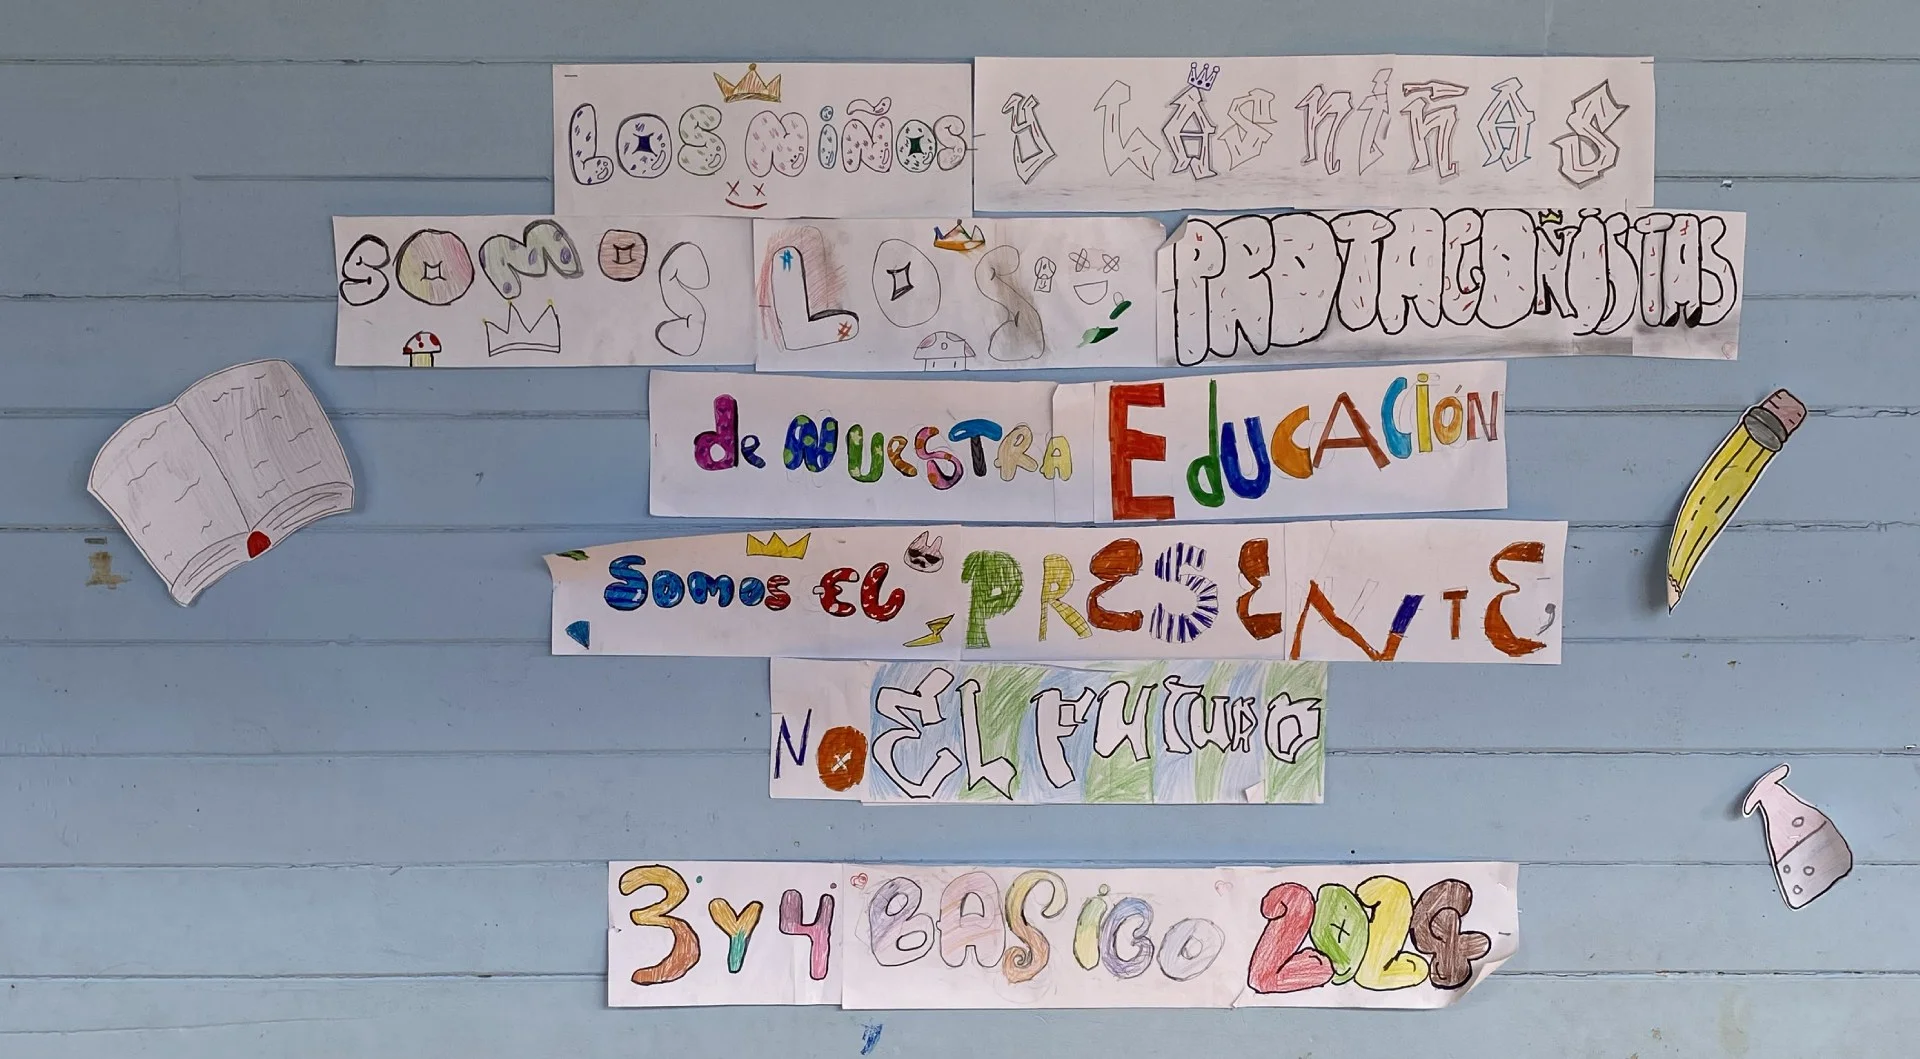 LOS NiÑOS y LAS NIÑAS
SOMOS LOS PROTAGOÑISTAS
de NUESTRA EdUCACIÓN
SOMOS EL PRESENTE,
NO EL FUTURO
3° Y 4° BASiCO 2024